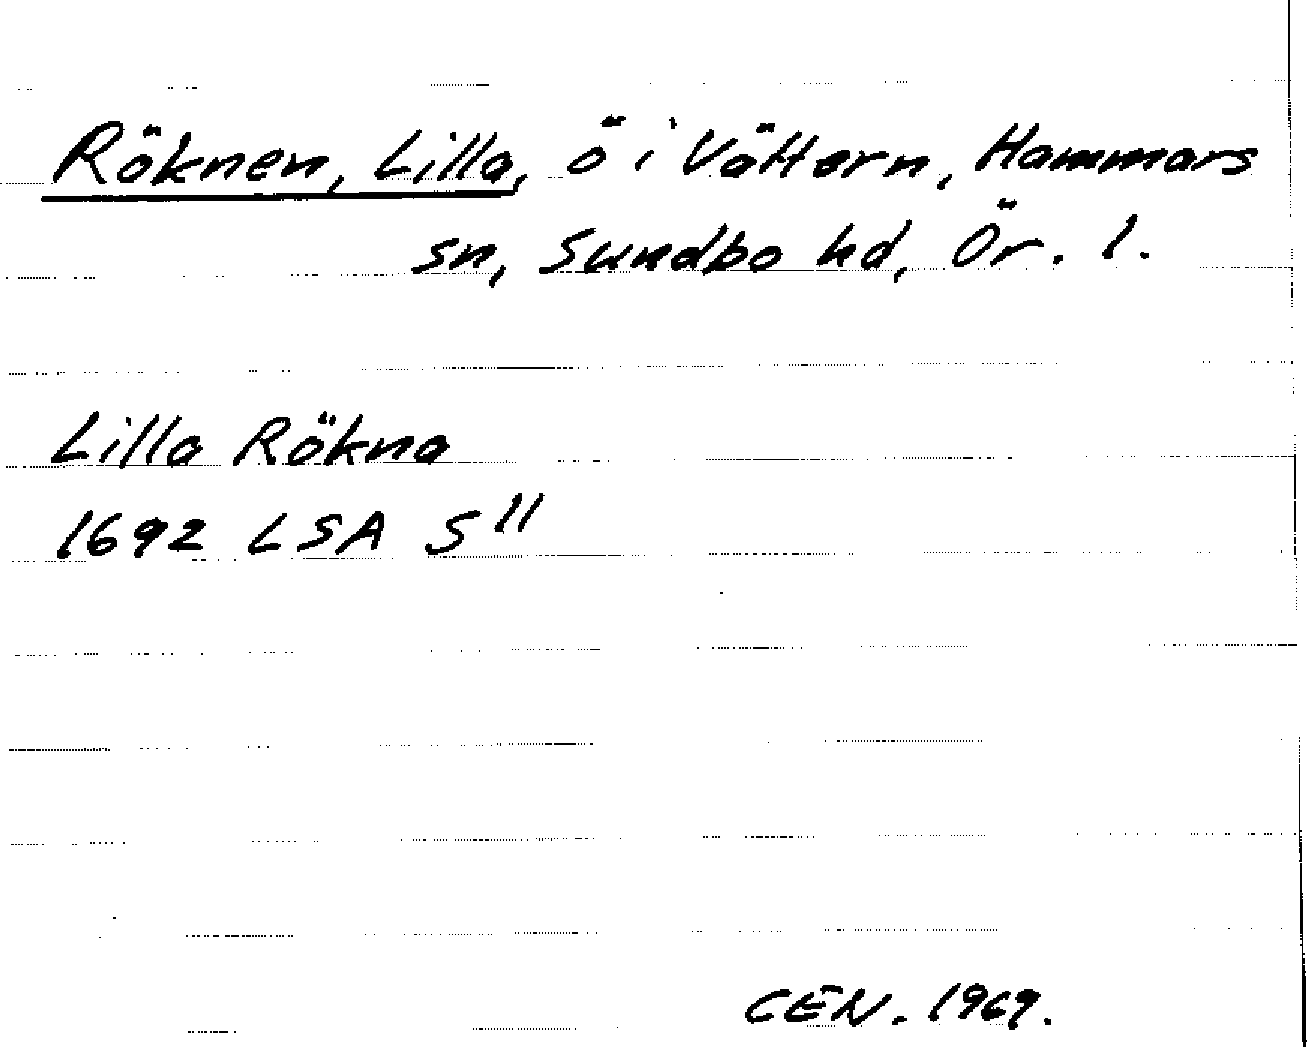 Röknen, Lilla, ö i Vättern, Hammars
sn, Sundbo hd, Ör. l.
Lilla Rökna
1692 LSA S 11
CEN. 1969.